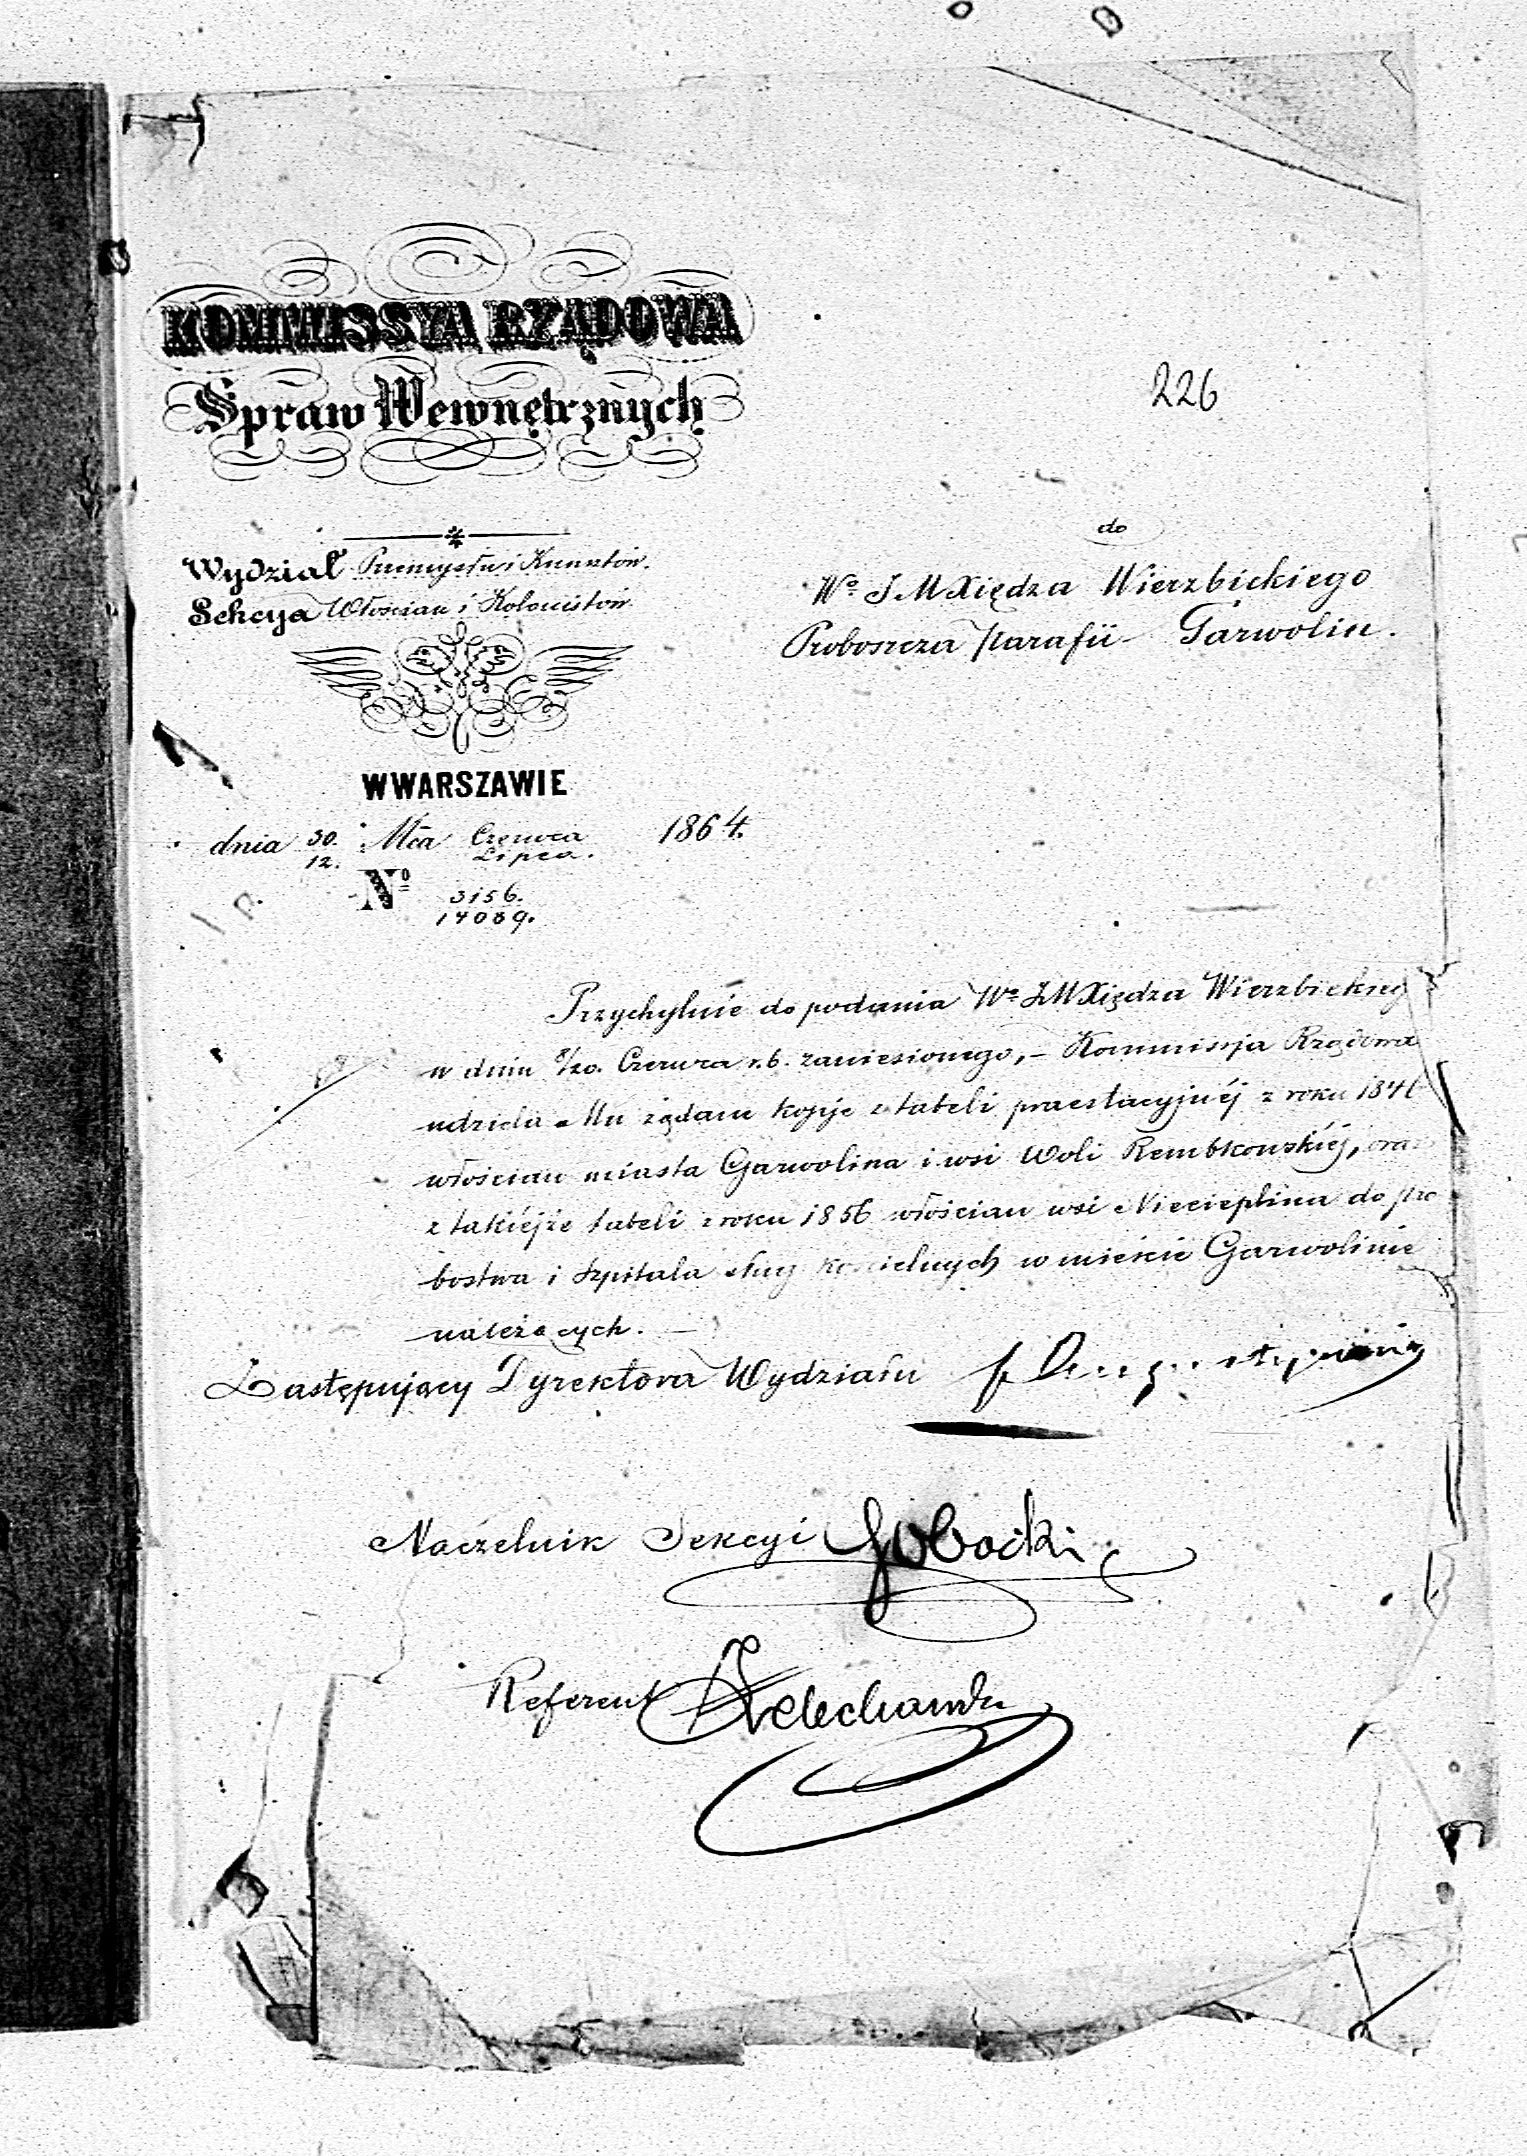 226
KOMMISSYA RZĄDOWA
Spraw Wewnętrznych
Wydział Przemysłu i Kunsztów.
Sekcya Włościan i Kolonistów
W WARSZAWIE
dnia 30./12. Mca Czerwca/Lipca. 1864.
No 3156./14089.
do
Wo JMXiędza Wierzbickiego
Proboszcza parafii Garwolin.
Przychylnie do podania Wo JMXiędza Wierzbickieg
w dniu 8/20. Czerwca r.b. zaniesionego, – Kommissja Rządowa
udziela Mu żądane kopje z tabeli praestacyjnéj z roku 1846
włościan miasta Garwolina i wsi Woli Rembkowskiéj, oraz
z takiéjże tabeli z roku 1856 włościan wsi Niecieplina do pro
bostwa i szpitala sług kościelnych w mieście Garwolinie
należących.
Zastępujący Dyrektora Wydziału
Naczelnik Sekcyi
Referent